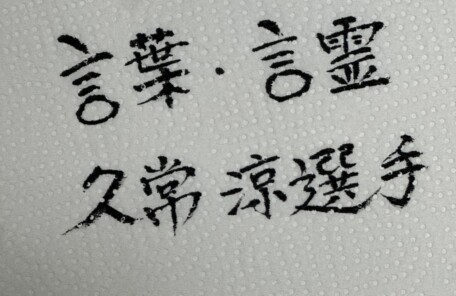 言葉・言霊
久常涼選手